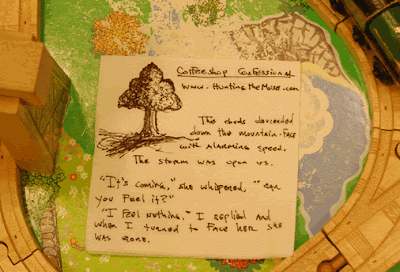 Coffeeshop Confessional
www.HuntingTheMuse.com
The clouds descended
down the mountain-face
with alarming speed.
The storm was upon us.
"It's coming," she whispered, "can
you feel it?"
"I feel nothing." I replied and
when I turned to face her she
was gone.